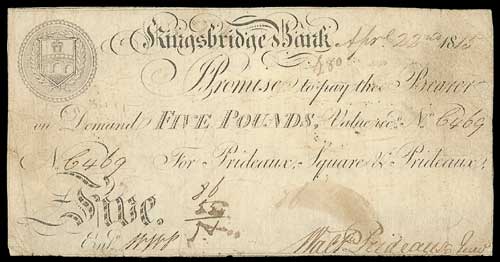 Kingsbridge Bank Apr. 22nd 1815
I Promise to pay the Bearer
on Demand FIVE POUNDS, Value rec'd. No. 6469
No. 6469 For Prideaux, Square & Prideaux,
Five.
Entd.
Walt. Prideaux Junr